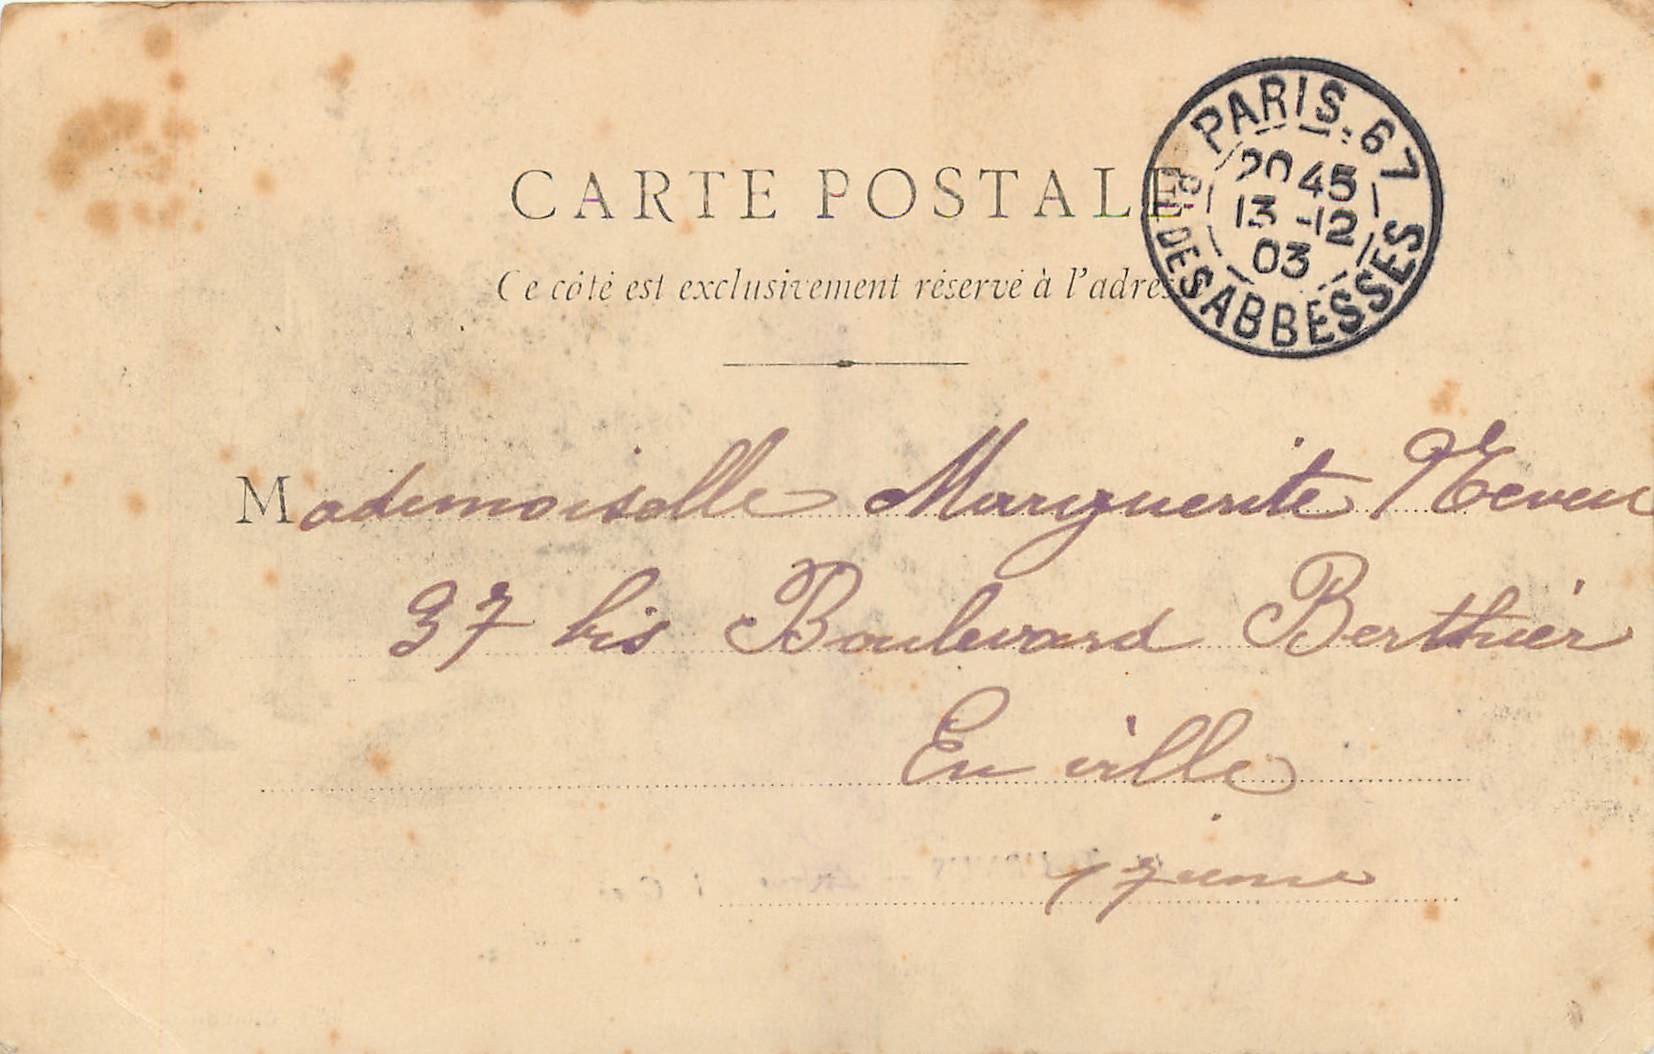 CARTE POSTALE
Ce côté est exclusivement réservé à l'adres
PARIS. 67
Pl. DES ABBESSES
20 45
13 -12
03
Mademoiselle Marguerite
37 bis Boulevard Berthier
En ville
17 ième